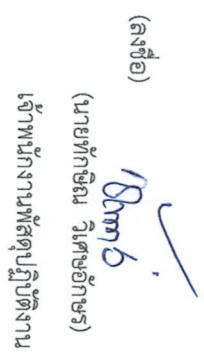 (ลงชื่อ)
(นายทักษิณ วิเศษอักษร)
เจ้าพนักงานพัสดุปฏิบัติงาน